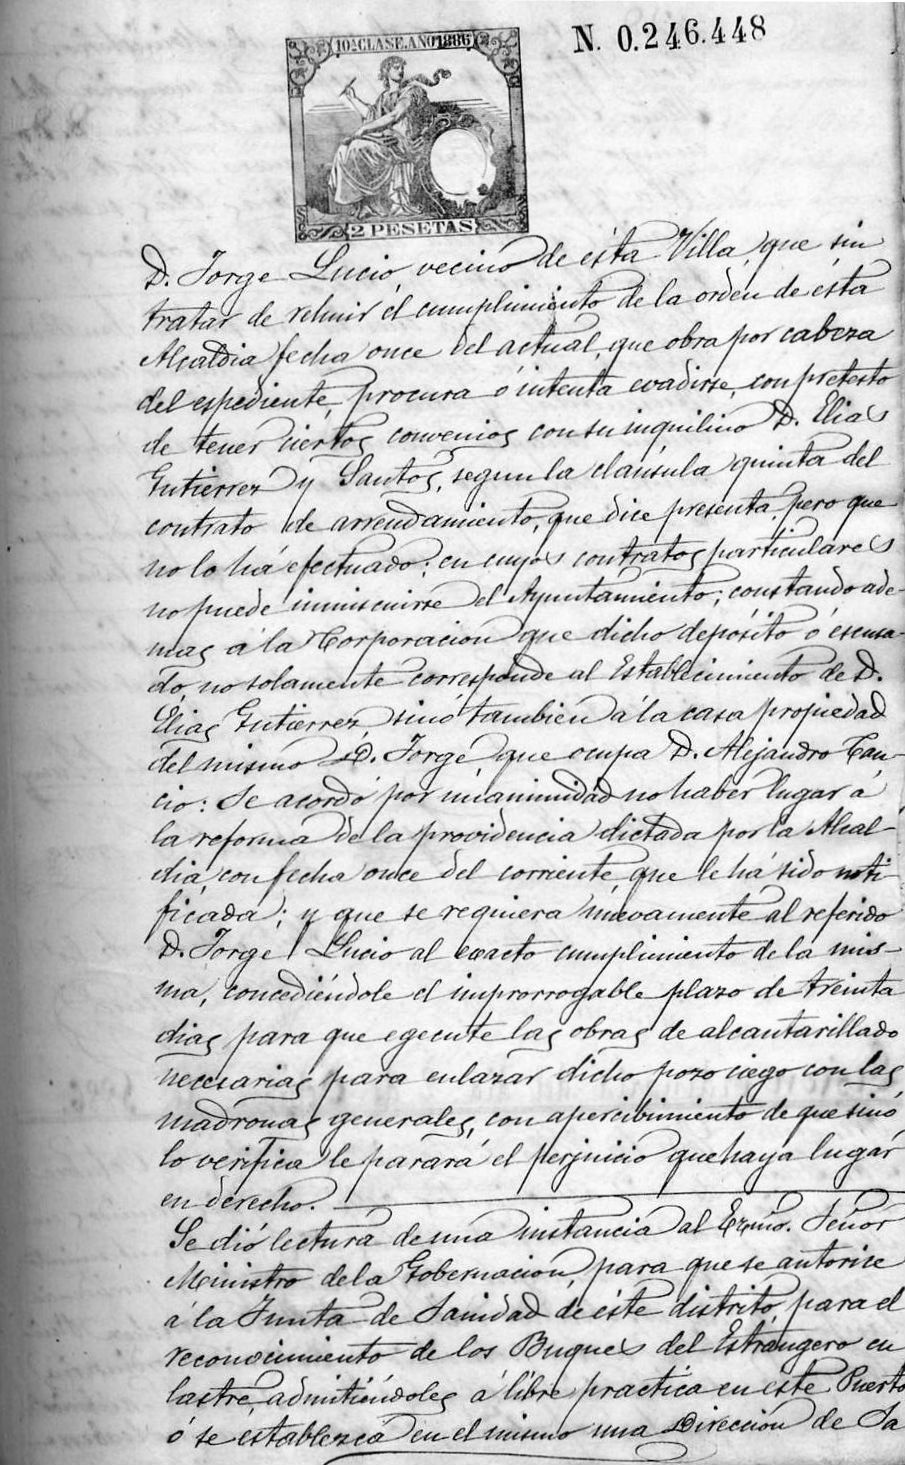 10ª CLASE. AÑO 1886
N. 0.246.448
2 PESETAS
D. Jorge Lucio vecino de ésta Villa, que sin
tratar de rehuir el cumplimiento de la orden de ésta
Alcaldia fecha once del actual, que obra por cabeza
del espediente, procura ó intenta evadirse, con pretesto
de tener ciertos convenios con su inquilino D. Elias
Gutierrez y Santos, segun la clausula quinta del
contrato de arrendamiento, que dice presenta, pero que
no lo há efectuado; en cuyos contratos particulares
no puede inmiscuirse el Ayuntamiento; constando ade-
mas á la Corporacion que dicho depósito ó escusa-
do, no solamente corresponde al Establecimiento de D.
Elias Gutierrez, sinó tambien á la casa propiedad
del mismo D. Jorge, que ocupa D. Alejandro Can-
cio: Se acordó por unanimidad no haber lugar á
la reforma de la providencia dictada por la Alcal-
dia, con fecha once del corriente, que le há sido noti-
ficada; y que se requiera nuevamente al referido
D. Jorge Lucio al exacto cumplimiento de la mis-
ma, concediéndole el improrrogable plazo de treinta
dias para que egecute las obras de alcantarillado
necesarias para enlazar dicho pozo ciego con las
madronas generales, con apercibimiento de que sinó
lo verifica le parará el perjuicio que haya lugar
en derecho.
Se dió lectura de una instancia al Exmo. Señor
Ministro de la Gobernacion, para que se autorice
á la Junta de Sanidad de éste distrito, para el
reconocimiento de los Buques del Estrangero en
lastre, admitiéndoles á libre practica en este Puerto
ó se establezca en el mismo una Direccion de Sa